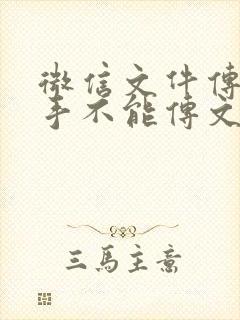 微信文件传
手不能传文
三馬主意